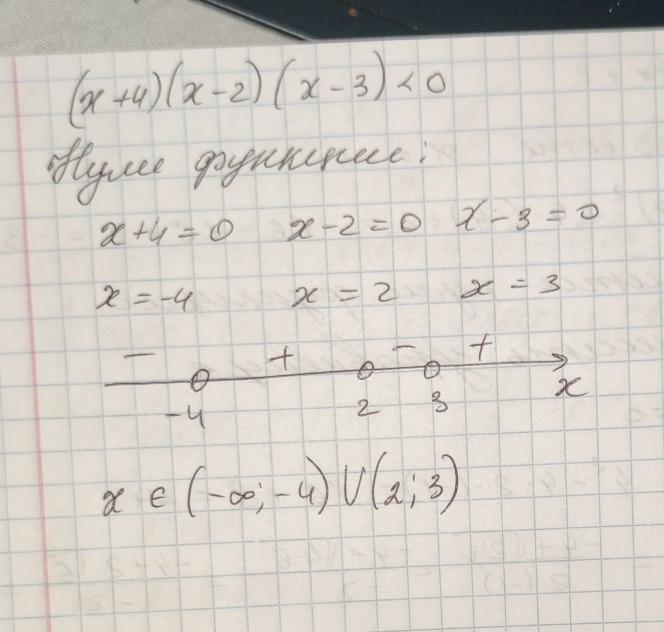 (x+4)(x-2)(x-3)<0
Нули функции:
x+4=0 x-2=0 x-3=0
x=-4 x=2 x=3
- + - +
-4 2 3 x
x ∈ (-∞;-4)∪(2;3)